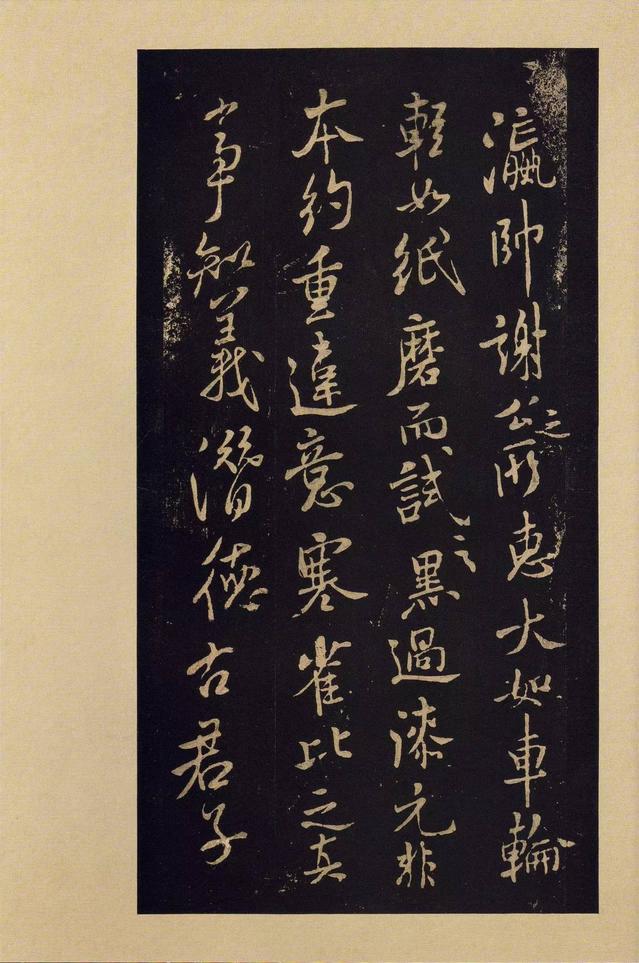 瀛帥謝公之所惠大如車輪
輕如紙磨而試之黑過漆元非
本約重違意寒雀比之真
小事知義潛德古君子